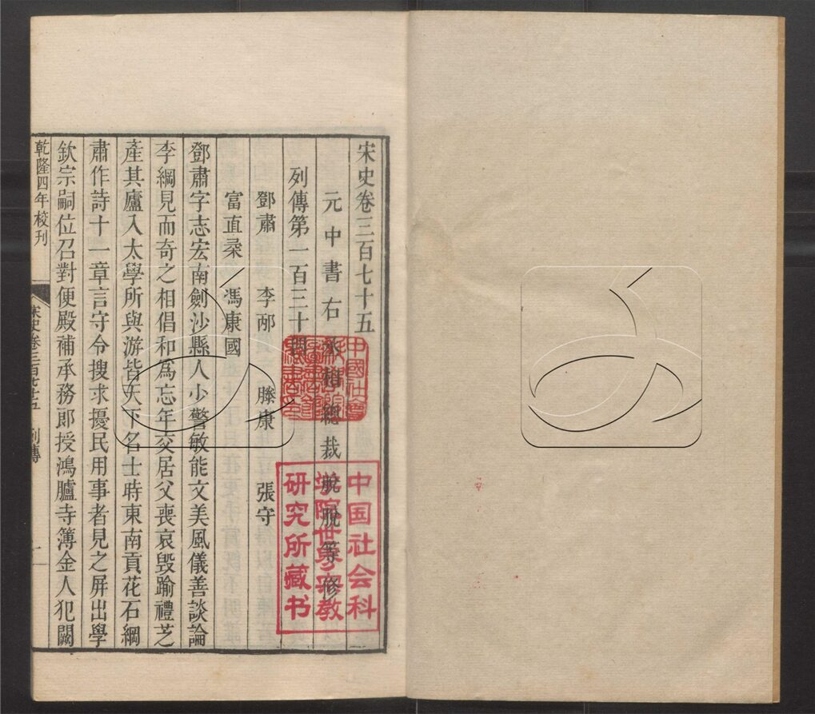 宋史卷三百七十五
元中書右丞相總裁脫脫等修
列傳第一百三十四
鄧肅 李邴 滕康 張守
富直柔 馮康國
鄧肅字志宏南劍沙縣人少警敏能文美風儀善談論
李綱見而奇之相倡和爲忘年交居父喪哀毀踰禮芝
產其廬入太學所與游皆天下名士時東南貢花石綱
肅作詩十一章言守令搜求擾民用事者見之屏出學
欽宗嗣位召對便殿補承務郎授鴻臚寺簿金人犯闕
乾隆四年校刊
宋史卷三百七十五 列傳
一
中国社会科
学院世界宗教
研究所藏书